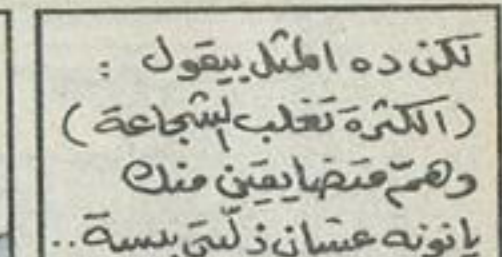 لكن ده المثل بيقول :
(الكثرة تغلب الشجاعة)
وهمّ متضايقين منك
يا نونه عشان ذلّيتى بسبسة..